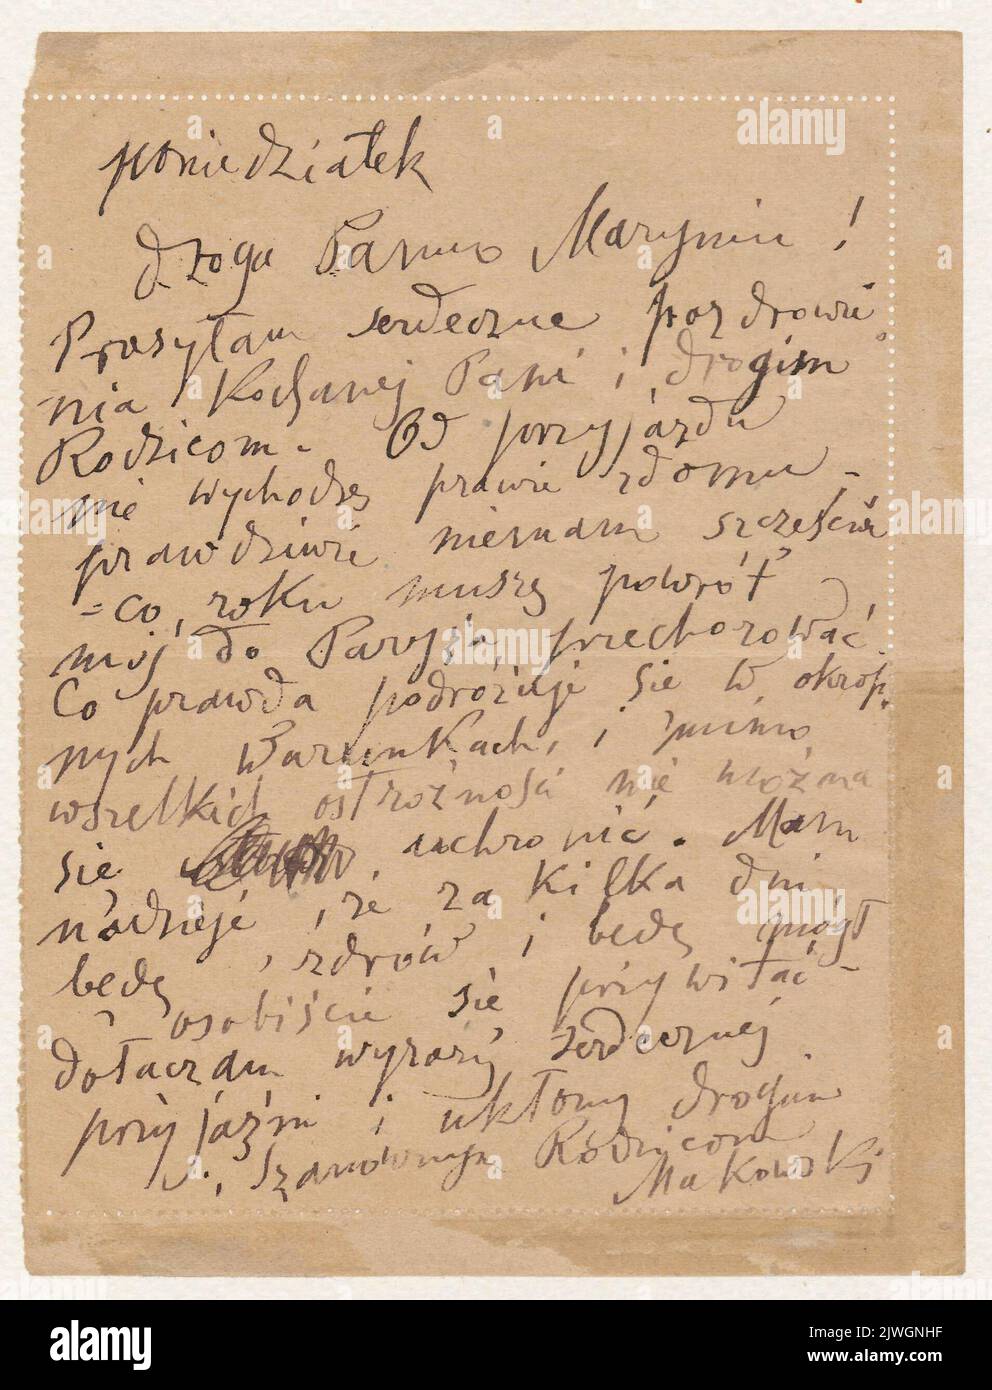 poniedziałek
Droga Panno Maryniu!
Przesyłam serdeczne pozdrowie
nia Kochanej Pani i drogim
Rodzicom. Od przyjazdu
nie wychodzę prawie z domu –
prawdziwie niemam szczęścia
= co roku muszę powrót
mój do Paryża przechorować.
Co prawda podróżuje się w okrop
nych warunkach, i mimo
wszelkich ostrożności nie można
się uchronić. Mam
nadzieję, że za kilka dni
będę zdrów i będę mógł
osobiście się przywitać –
dołaczam wyrazy serdecznej
przyjaźni i ukłony drogim
Szanownym Rodzicom
Makowski
alamy
Image ID: 2JWGNHF
www.alamy.com